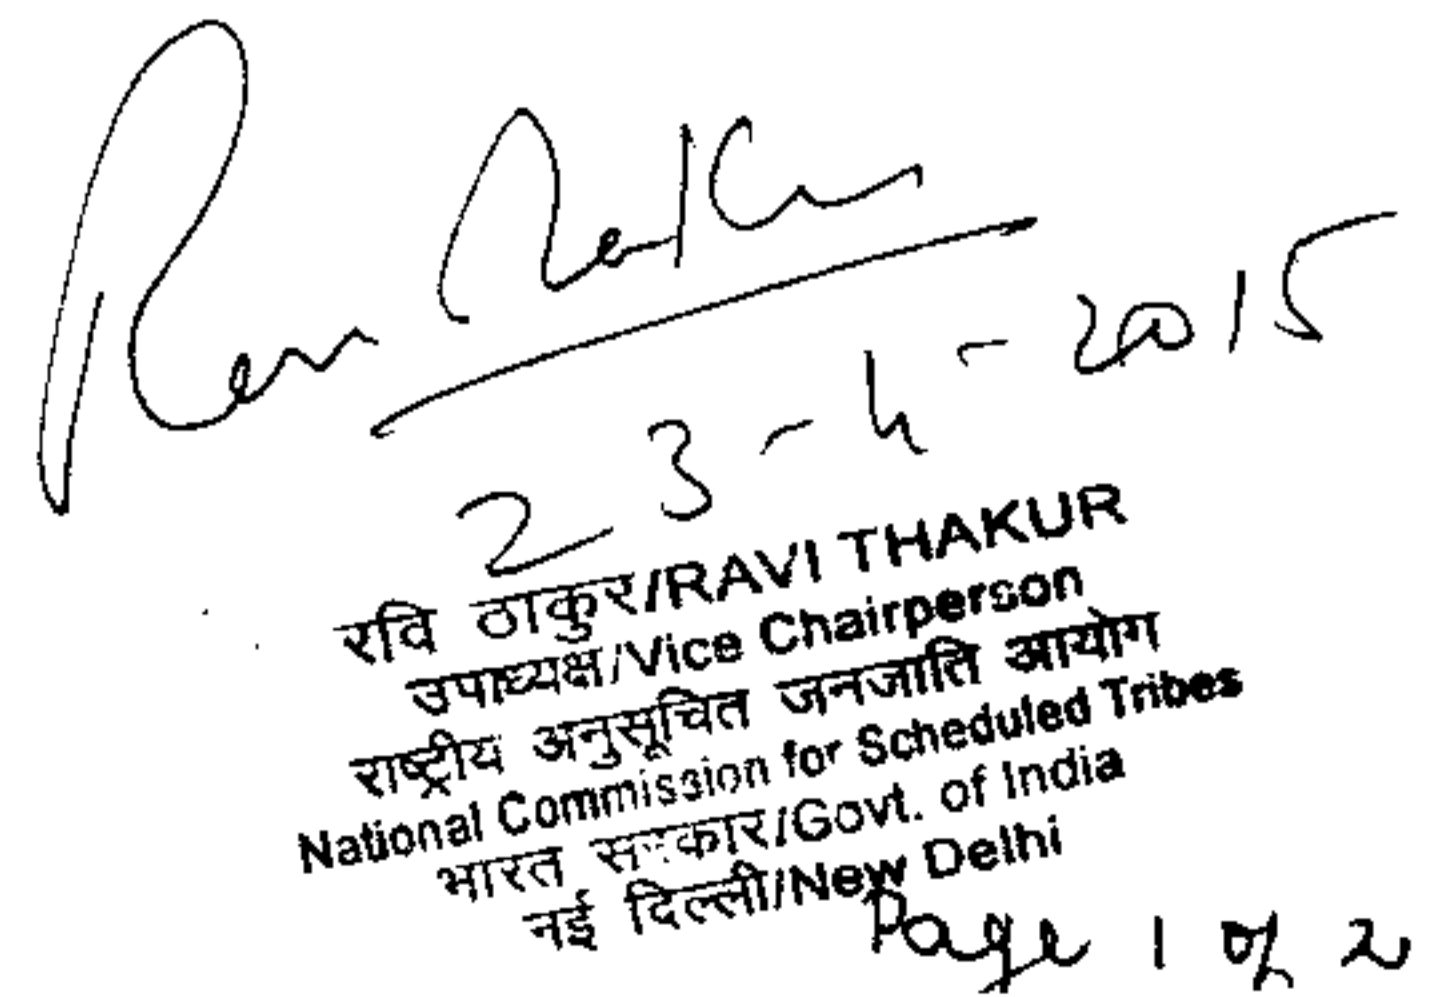 23-4-2015
रवि ठाकुर/RAVI THAKUR
उपाध्यक्ष/Vice Chairperson
राष्ट्रीय अनुसूचित जनजाति आयोग
National Commission for Scheduled Tribes
भारत सरकार/Govt. of India
नई दिल्ली/New Delhi
Page 1 of 2